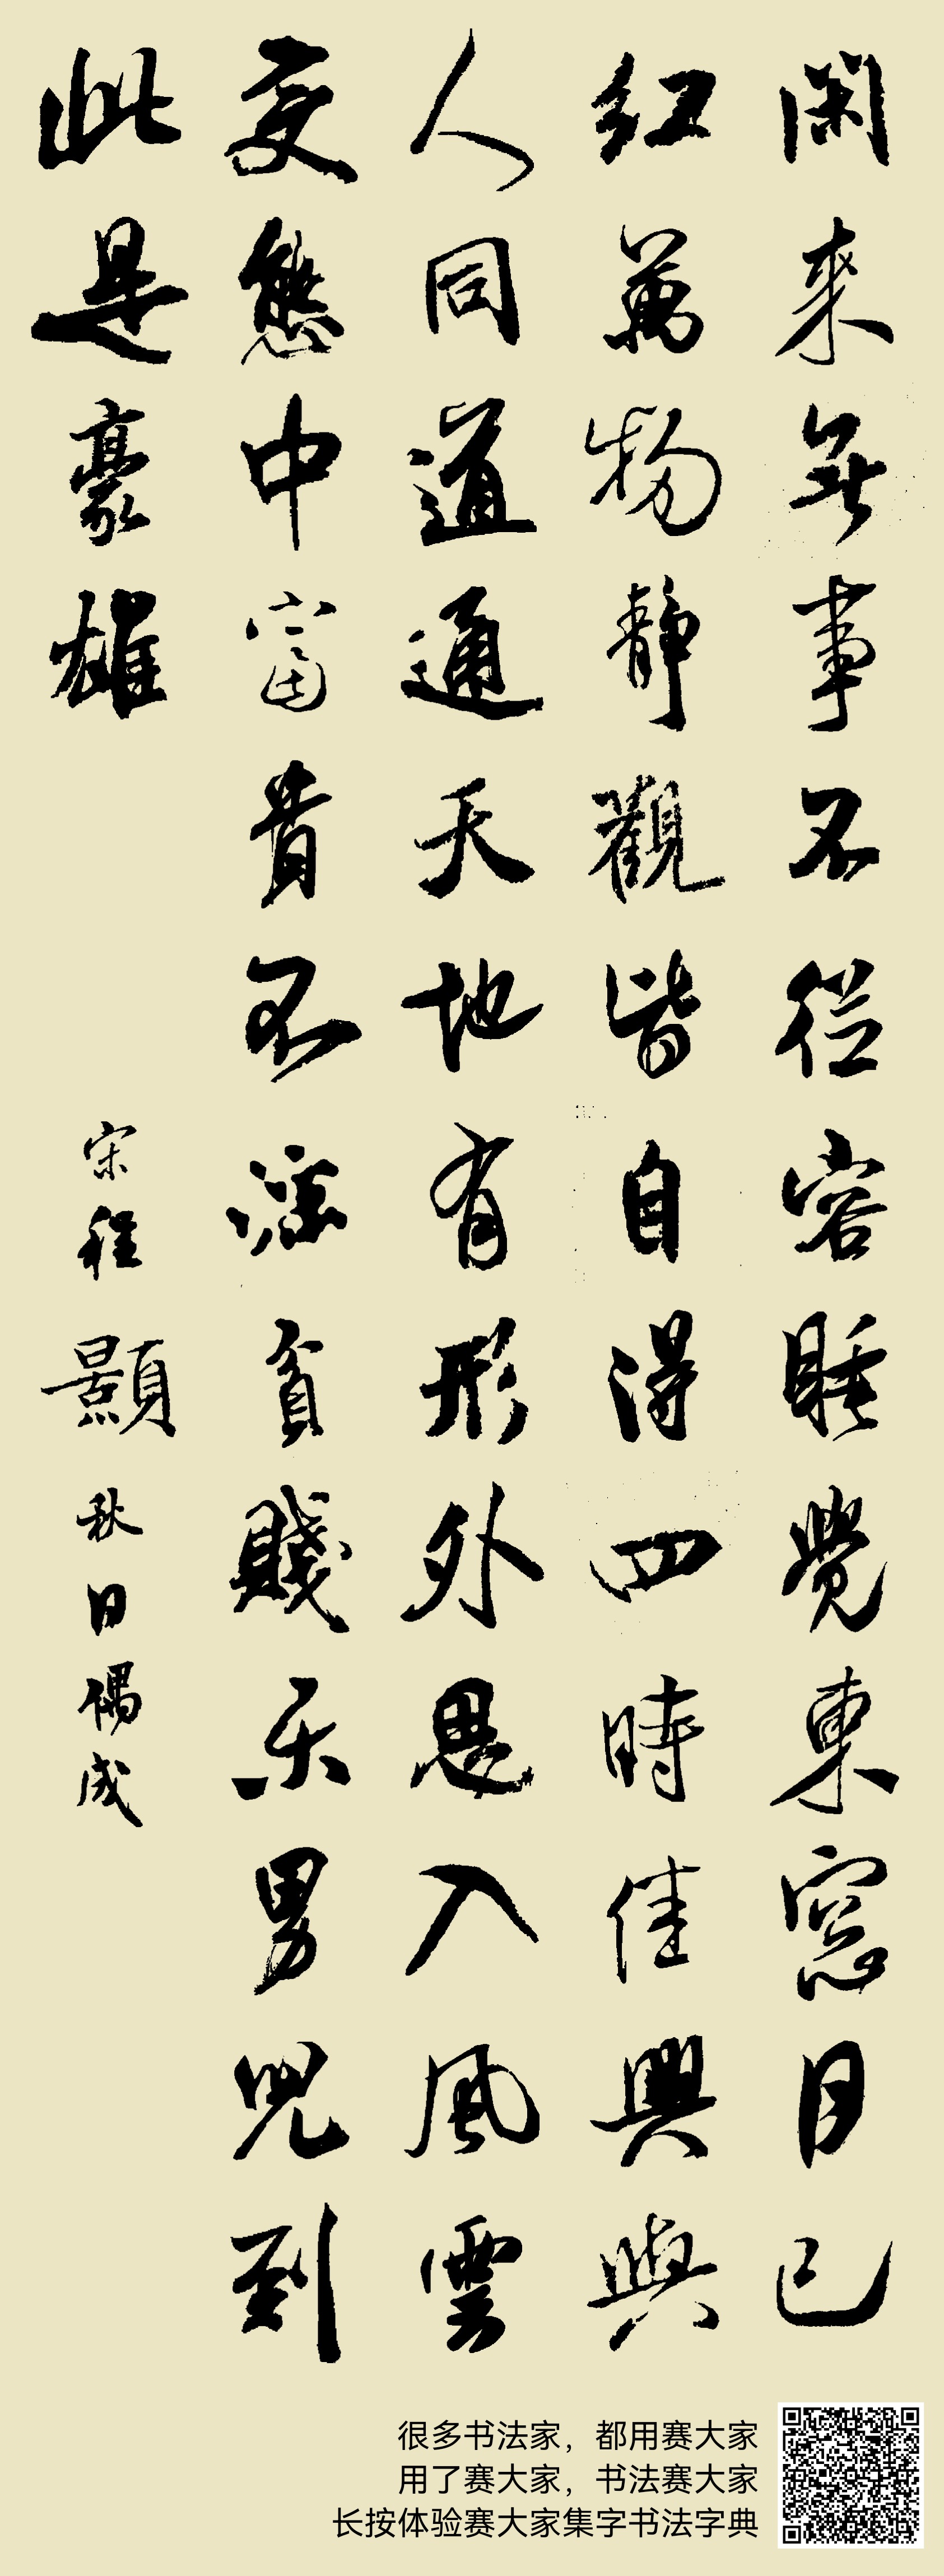 閑来無事不從容睡覺東窓日已
紅萬物静觀皆自得四時佳興與
人同道通天地有形外思入風雲
变態中富貴不淫貧賤乐男兒到
此是豪雄
宋程顥秋日偶成
很多书法家，都用赛大家
用了赛大家，书法赛大家
长按体验赛大家集字书法字典